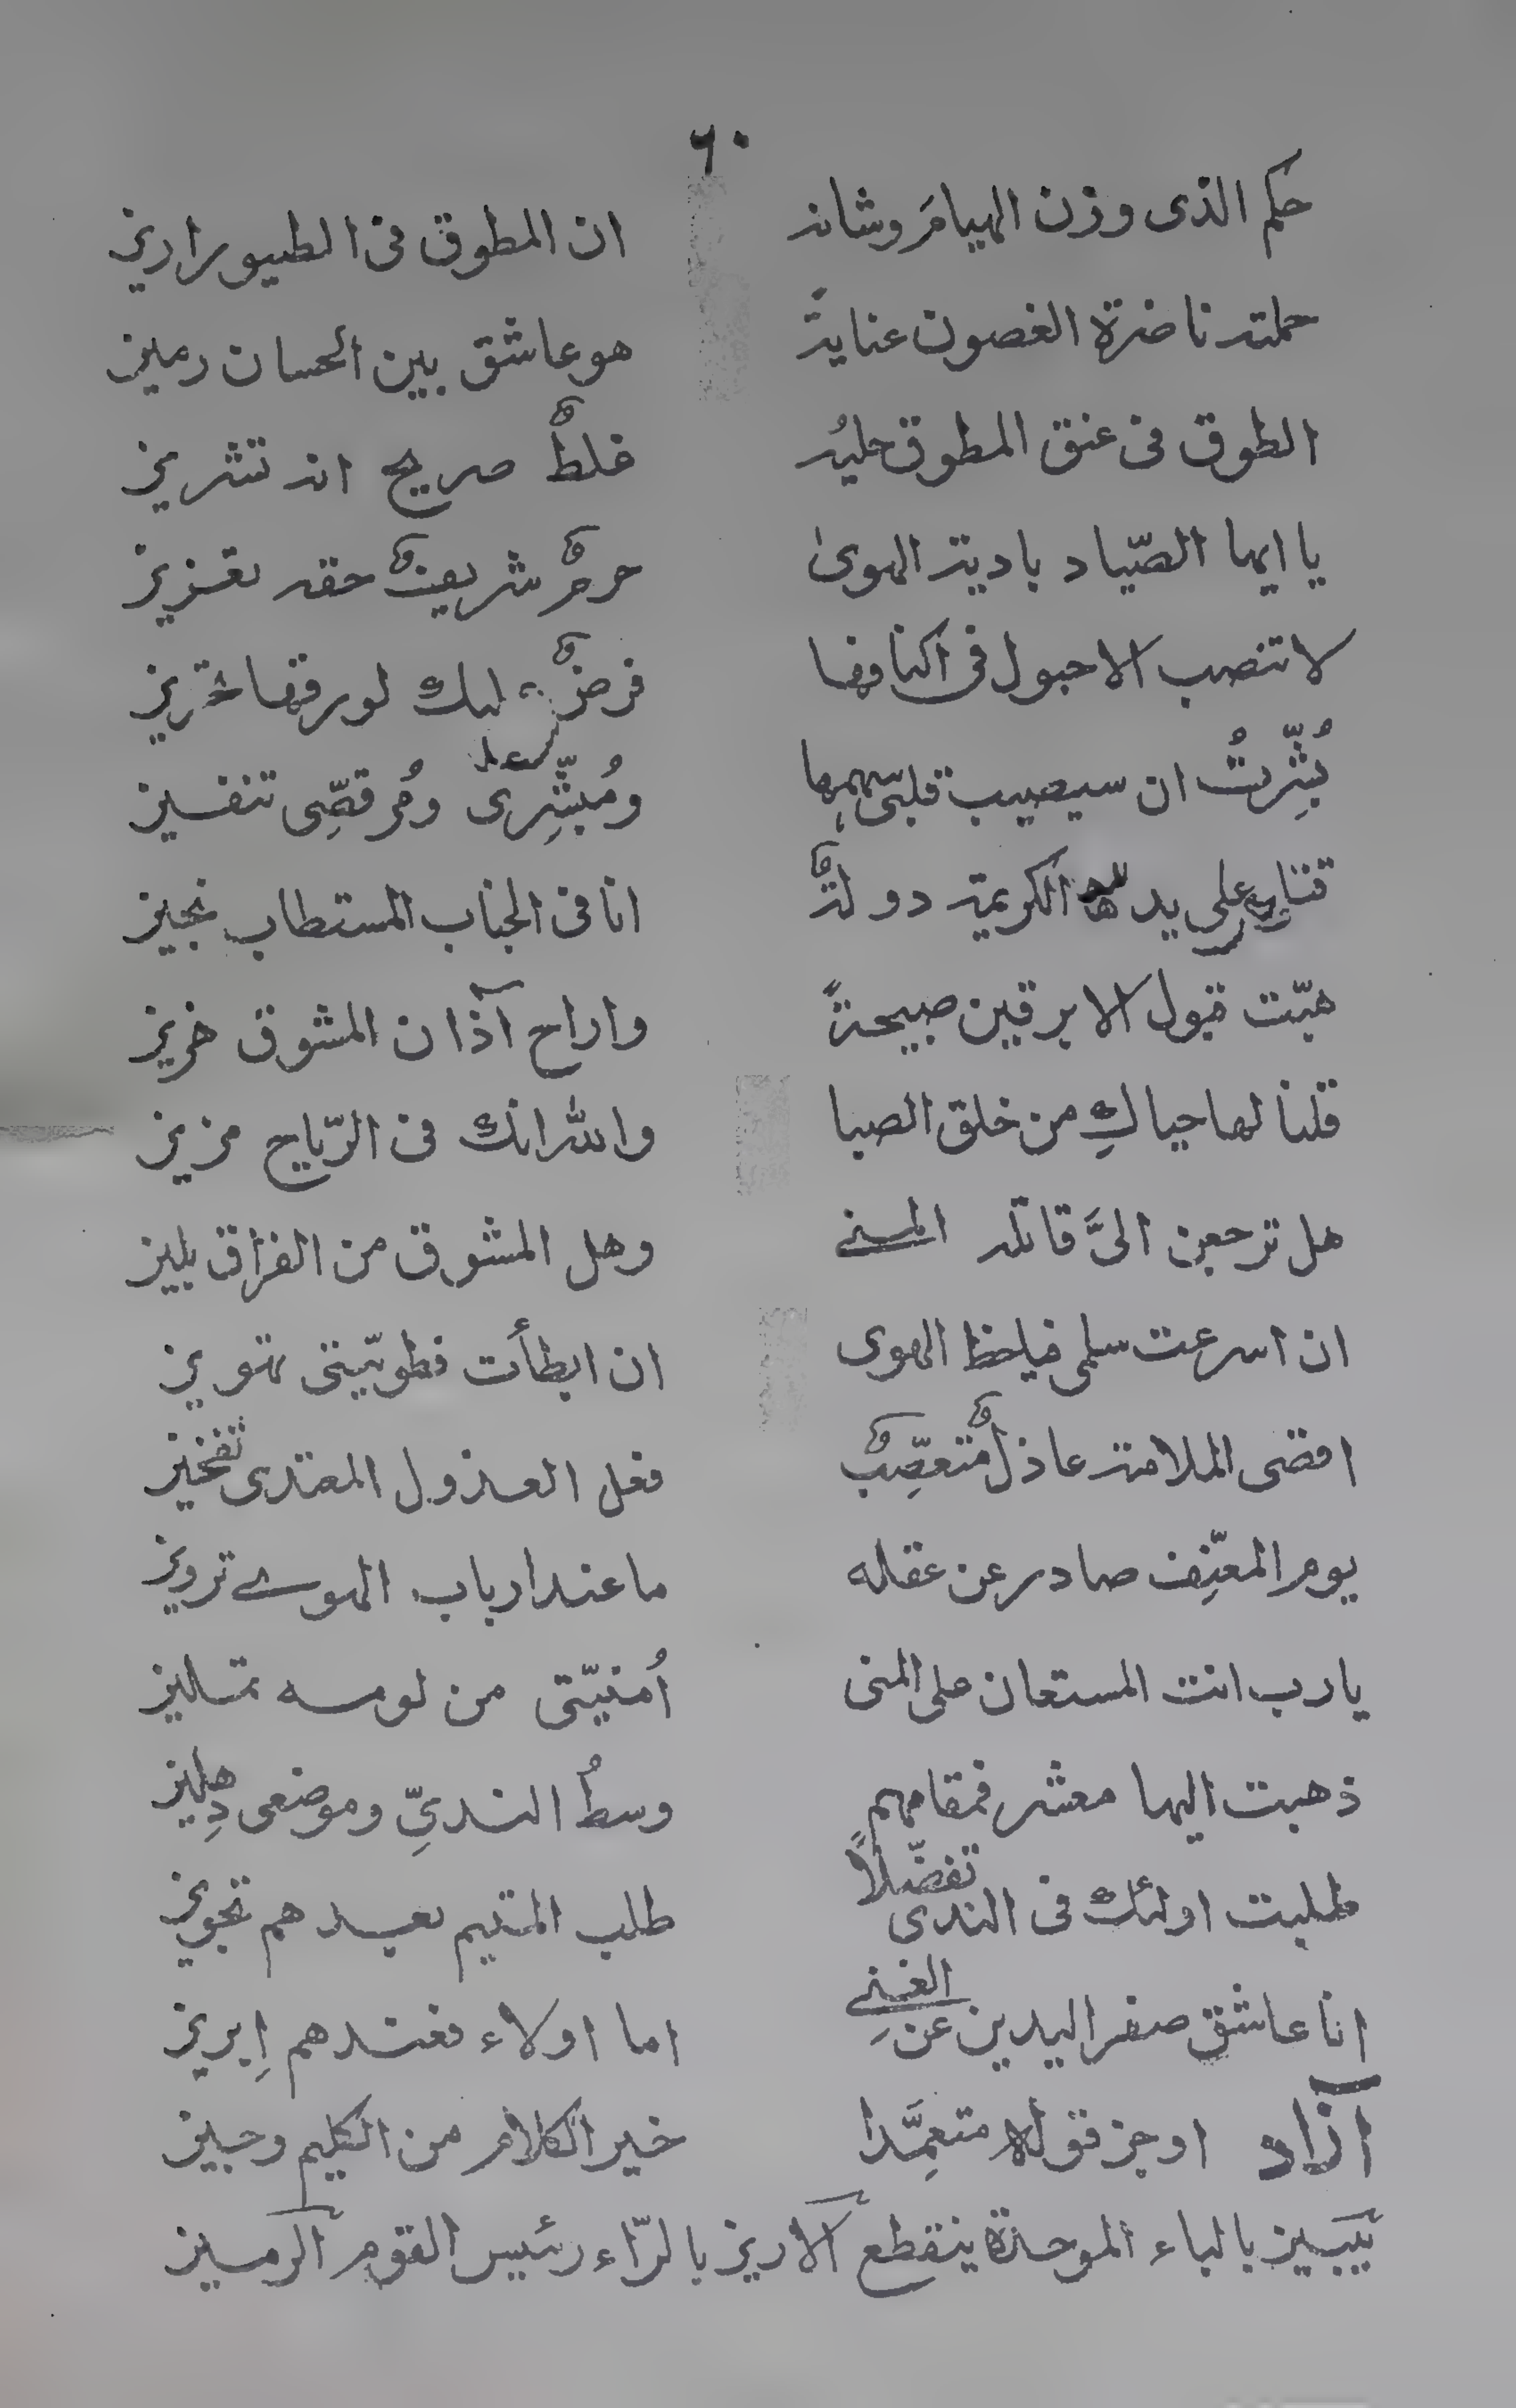 ٦٠
حكم الذى وزن الهيامَ وشانه ان المطوق فى الطيور اريز
حملته ناضرة الغصون عنايةً هو عاشق بين الحسان رميز
الطوق فى عنق المطوق حليُه غلطٌ صريح انه تشريز
يا ايها الصّياد بادية الهوىٰ حرمٌ شريفٌ حقه تعزيز
لا تنصب الاحبول فى اكنافها فرضٌ عليك لورقها تحريز
بُشِّرتُ ان سيصيب قلبى سهمها ومُبشِّرى ومُرقصِّى تنفسيز
قتلى على يدها الكريمة دولةٌ انا فى الجناب المستطاب نجيز
هبّت قبول الابرقين صبيحةً واراح آذان المشوق خزيز
قلنا لها حياكِ من خلق الصبا والله انك فى الرّياح مزيز
هل ترجعن الىَّ قاتلة المنے وهل المشوق من الفراق بليز
ان اسرعت سلمى فيا حظ الهوى ان ابطأت فطويّتى تهويز
اقضى الملامة عاذلٌ متعصِّبٌ فعل العذول المعتدى تفخيز
يوم المعنِّف صادر عن عقله ما عند ارباب الهوے ترويز
يا رب انت المستعان على المنى أُمنيّتى من لومه تمليز
ذهبت اليها معشر فمقامهم وسطُ الندىِّ وموضعى دِهليز
طلبت اولئك فى الندى تفضّلاً طلب المتيم بعدهم تجويز
انا عاشق صفر اليدين عن الغنِے اما اولاء فعندهم اِبريز
آزاد اوجز قوله متعمِّدا خير الكلام من الكليم وجيز
يبيز بالباء الموحدة ينقطع الاريز بالرّاء رئيس القوم الرميز